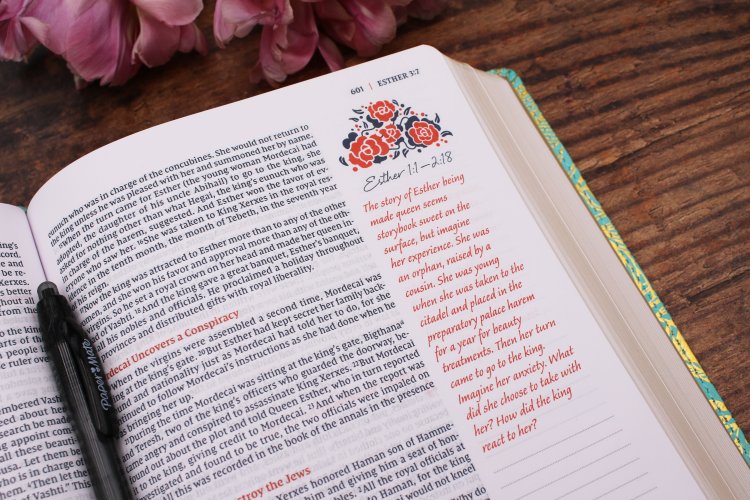 601 | ESTHER 3:7
eunuch who was in charge of the concubines. She would not return to
the king unless he was pleased with her and summoned her by name.
When the turn came for Esther (the young woman Mordecai had
adopted, the daughter of his uncle Abihail) to go to the king, she
asked for nothing other than what Hegai, the king's eunuch who was
in charge of the harem, suggested. And Esther won the favor of ev-
eryone who saw her. ¹⁶She was taken to King Xerxes in the royal res-
idence in the tenth month, the month of Tebeth, in the seventh year
his reign.
king was attracted to Esther more than to any of the other
women, and she won his favor and approval more than any of the oth-
So he set a royal crown on her head and made her queen in-
of Vashti. ¹⁸And the king gave a great banquet, Esther's banquet,
nobles and officials. He proclaimed a holiday throughout
provinces and distributed gifts with royal liberality.
decai Uncovers a Conspiracy
When the virgins were assembled a second time, Mordecai was
sitting at the king's gate. ²⁰But Esther had kept secret her family back-
ground and nationality just as Mordecai had told her to do, for she
continued to follow Mordecai's instructions as she had done when he
bringing her up.
During the time Mordecai was sitting at the king's gate, Bigthana
and Teresh, two of the king's officers who guarded the doorway, be-
came angry and conspired to assassinate King Xerxes. ²²But Mordecai
found out about the plot and told Queen Esther, who in turn reported
to the king, giving credit to Mordecai. ²³And when the report was
investigated and found to be true, the two officials were impaled on
All this was recorded in the book of the annals in the presence
troy the Jews
Xerxes honored Haman son of Hamme-
and giving him a seat of hon-
nobles. ²All the royal officials at
to Haman, for the king
would not kneel
why do
Esther 1:1—2:18
The story of Esther being
made queen seems
storybook sweet on the
surface, but imagine
her experience. She was
an orphan, raised by a
cousin. She was young
when she was taken to the
citadel and placed in the
preparatory palace harem
for a year for beauty
treatments. Then her turn
came to go to the king.
Imagine her anxiety. What
did she choose to take with
her? How did the king
react to her?
PAPER MATE